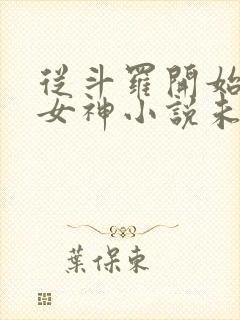 從斗羅開始
女神小說未
葉保東